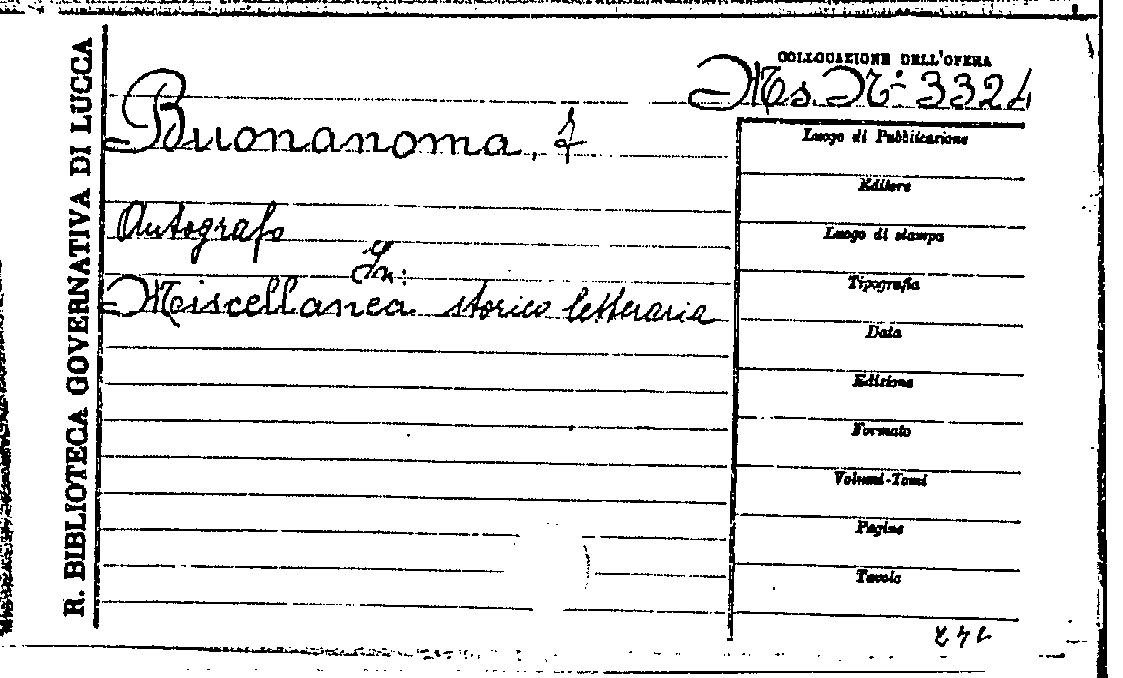 R. BIBLIOTECA GOVERNATIVA DI LUCCA
COLLOCAZIONE DELL'OPERA
Ms. N.° 3324
Buonanoma, F
Autografo
In:
Miscellanea storico letteraria
Luogo di Pubblicazione
Editore
Luogo di stampa
Tipografia
Data
Edizione
Formato
Volumi-Tomi
Pagine
Tavole